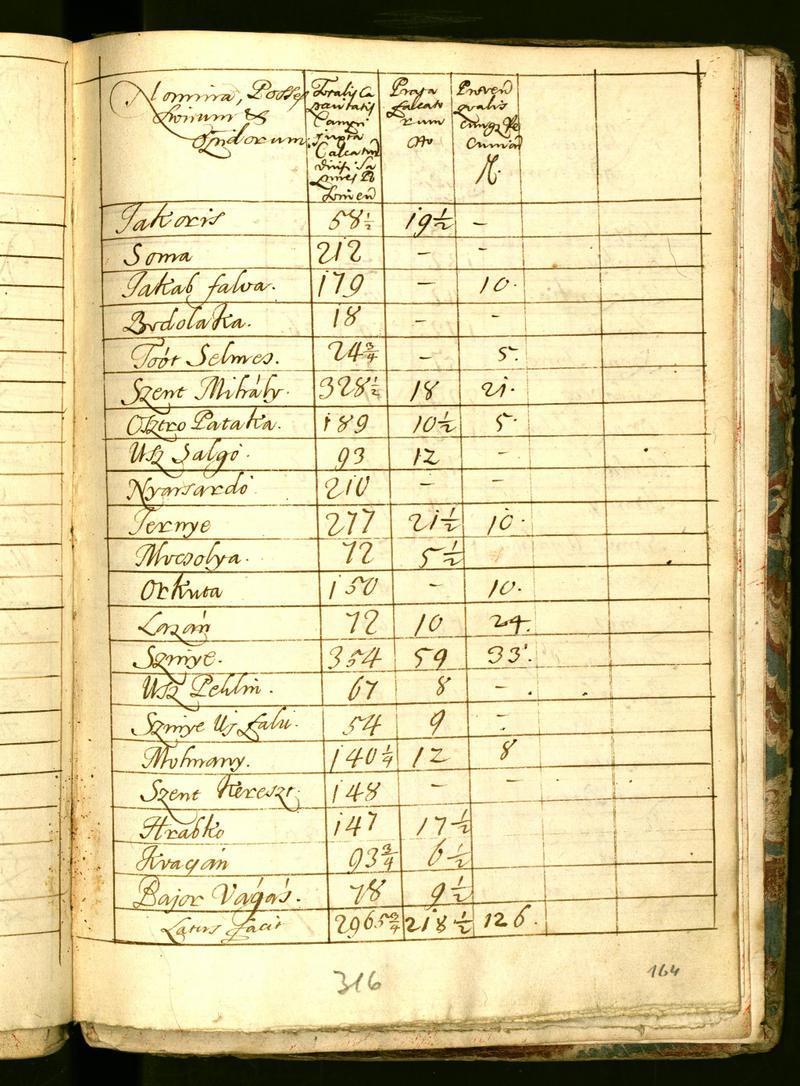 Nomina, Posses
sionum &
Oppidorum
Totalis Ca
pacitatis
Campi
juxta
Prata
Falcato
rum
Proven
Jakoris 58½ 19½ –
Soma 212 – –
Jakab falva. 179 – 10.
Bodolaka. 18 – –
Toót Selmes. 24¾ – 5.
Szent Mihály. 328½ 18 21.
Osztro Pataka. 189 10½ 5.
Usz Salgó 93 12 –
Nyarsardó 210 – –
Ternye 277 21½ 10.
Mocsolya. 72 5½
Orkuta 150 – 10.
Lazán 72 10 24.
Szinye. 354 59 33.
Usz Peklin. 67 8 –
Szinye Uj falu. 54 9 –
Molnany. 140¼ 12 8
Szent Kereszt. 148 – –
Hrabko 147 17½
Kvacán 93¾ 6½
Bajor Vágás. 78 9½
Latus facit 2965¾ 218½ 126.
316
164